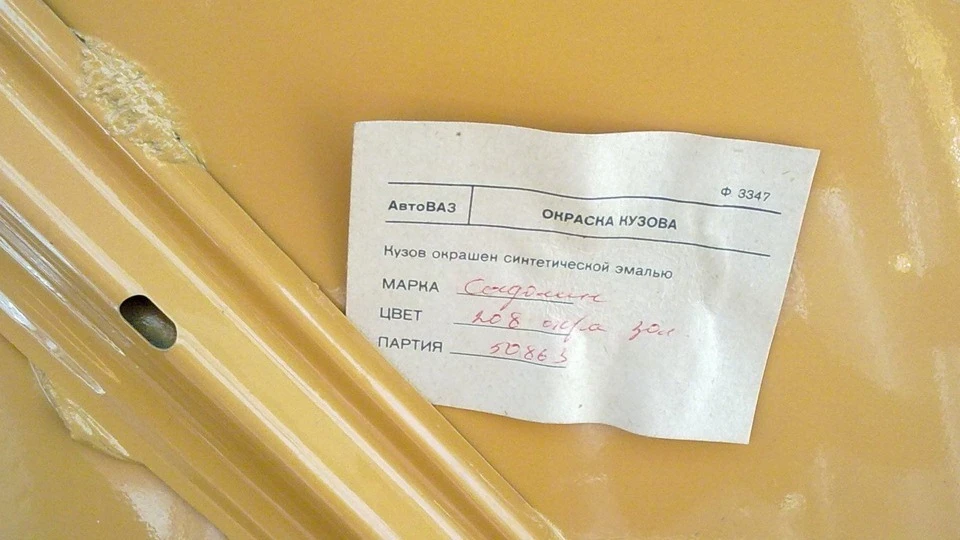 Ф 3347
АвтоВАЗ ОКРАСКА КУЗОВА
Кузов окрашен синтетической эмалью
МАРКА Садолин
ЦВЕТ 208 охра зол
ПАРТИЯ 50863